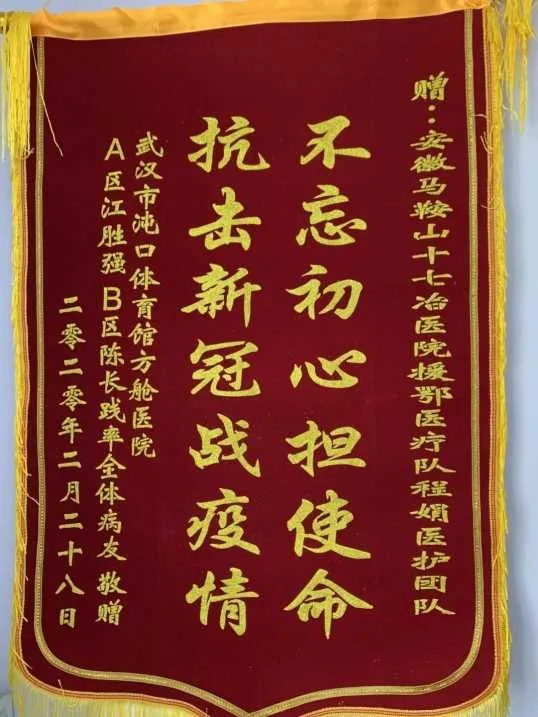 赠：安徽马鞍山十七冶医院援鄂医疗队程娟医护团队
不忘初心担使命
抗击新冠战疫情
武汉市沌口体育馆方舱医院
A区江胜强B区陈长践率全体病友 敬赠
二零二零年二月二十八日